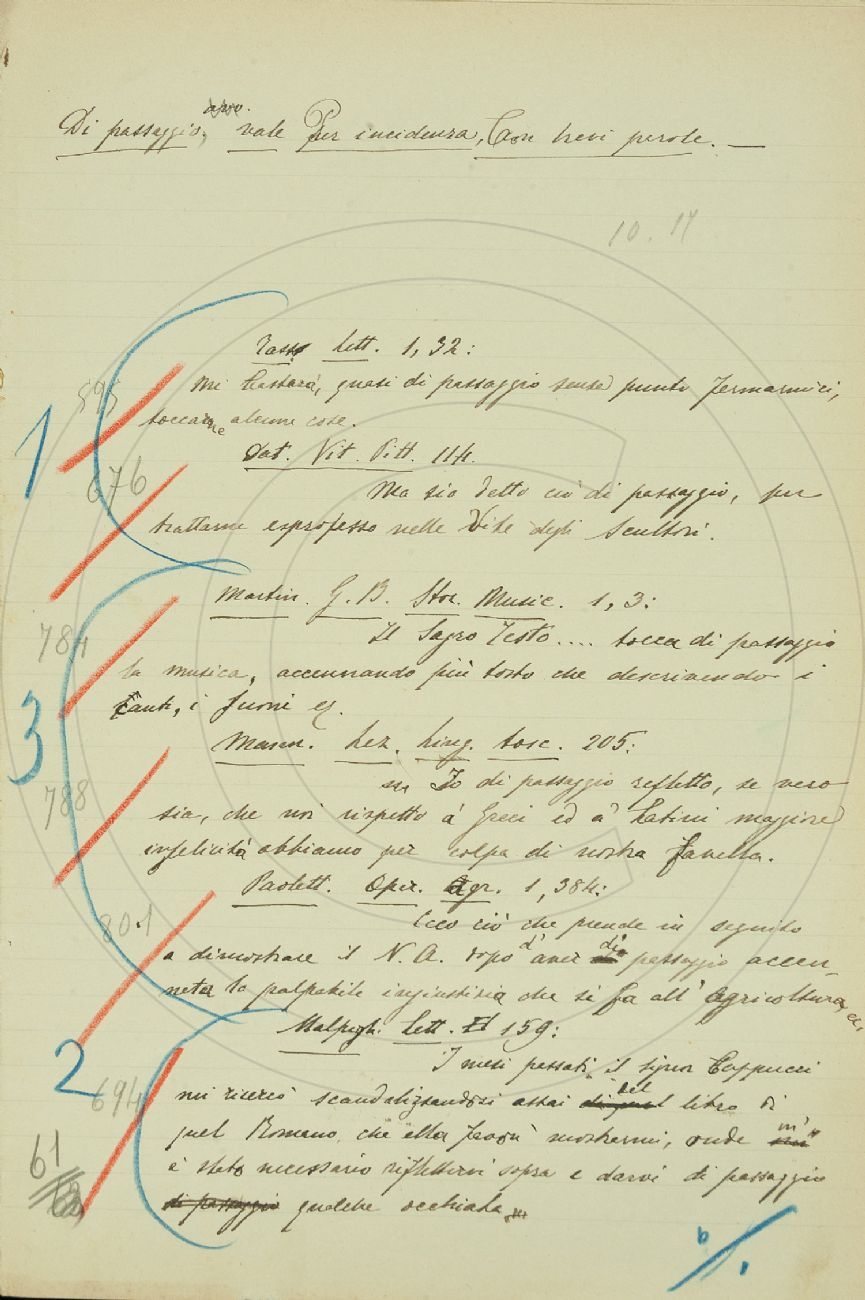 Di passaggio, vale Per incidenza, Con brevi parole. —
10. 17
Tass. Lett. 1, 32:
595
Mi basterà, quasi di passaggio senza punto fermarmici,
toccarne alcune cose.
1
Dat. Vit. Pitt. 114.
676
Ma sia detto ciò di passaggio, per
trattarne exprofesso nelle Vite degli Scultori.
Martin. G. B. Stor. Music. 1, 3:
784
Il Sagro Testo.... tocca di passaggio
la musica, accennando più tosto che descrivendo i
Canti, i suoni ec.
3
Mann. Lez. Ling. tosc. 205:
788
Io di passaggio refletto, se vero
sia, che noi rispetto a' Greci ed a' Latini maggiore
infelicità abbiamo per colpa di nostra favella.
Paolett. Oper. Agr. 1, 384:
801
Ecco ciò che prende in seguito
a dimostrare il N. A. dopo d'aver di passaggio accen-
nata la palpabile ingiustizia che si fa all'agricoltura ec.
Malpigh. Lett. 159:
2
I mesi passati il signor Cappucci
694
mi ricercò scandalizzandosi assai del libro di
quel Romano, che ella favorì mostrarmi, onde m'
61
è stato necessario riflettervi sopra e darvi di passaggio
di passaggio qualche occhiata.
b/1